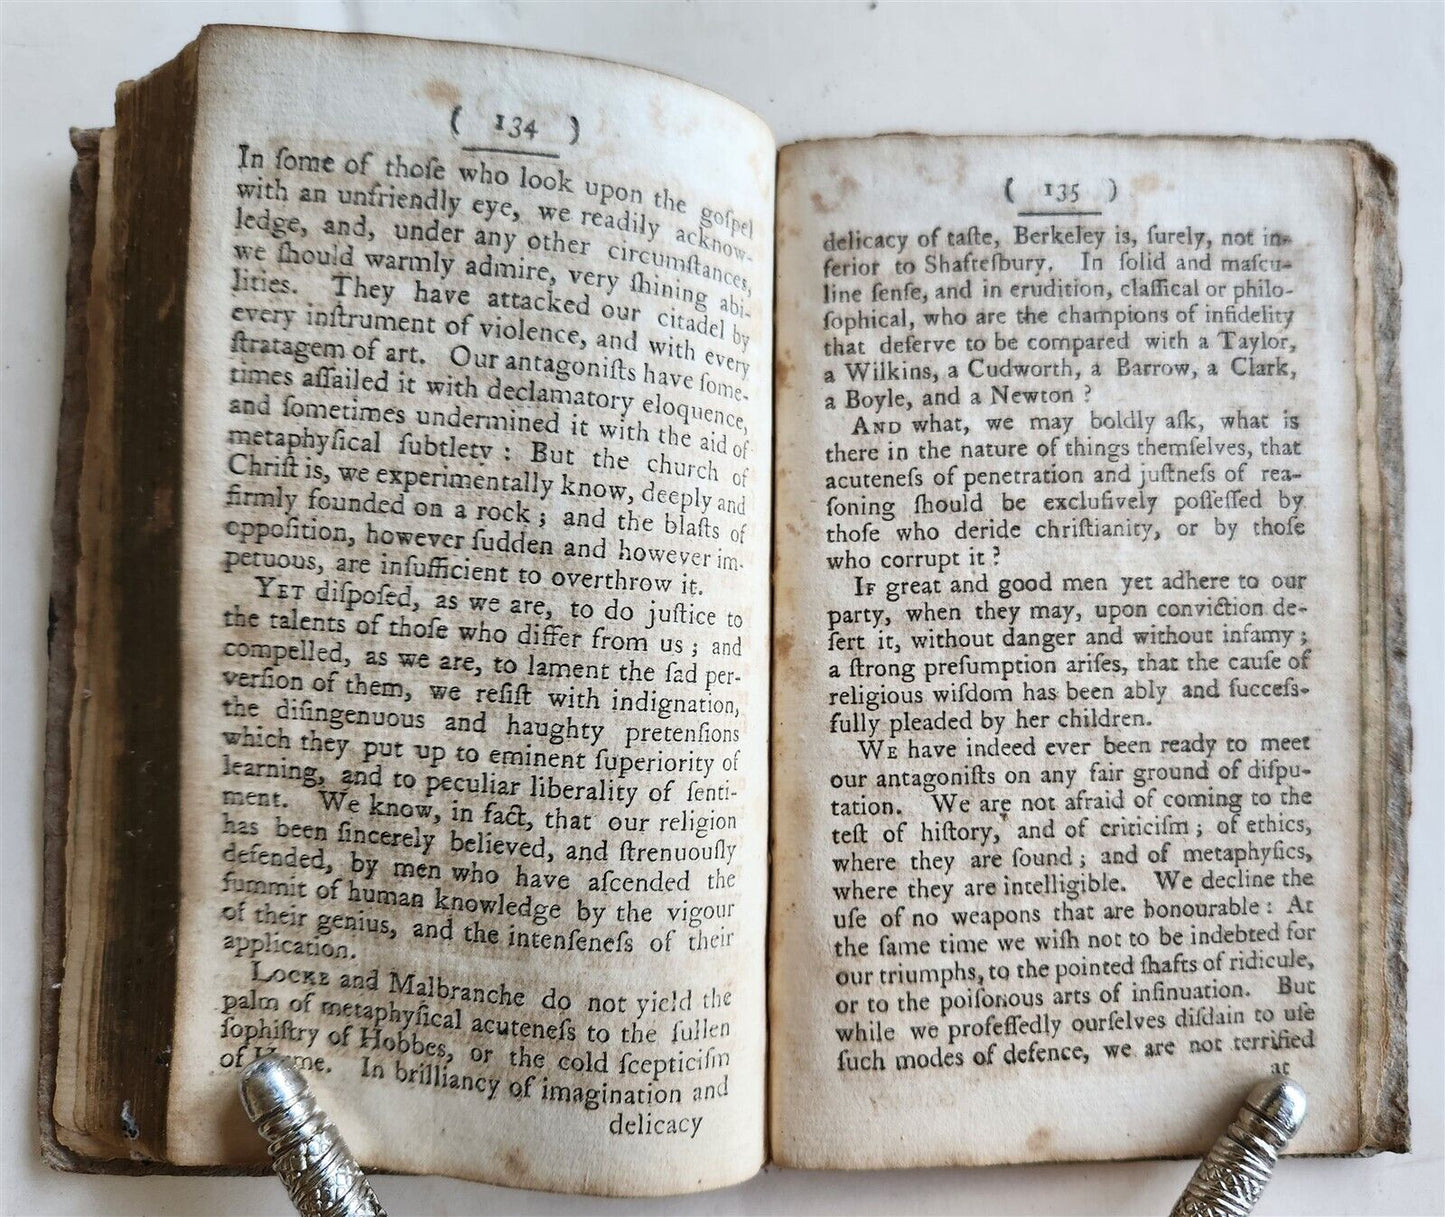 ( 134 )
In ſome of thoſe who look upon the goſpel
with an unfriendly eye, we readily acknow-
ledge, and, under any other circumſtances,
we ſhould warmly admire, very ſhining abi-
lities. They have attacked our citadel by
every inſtrument of violence, and with every
ſtratagem of art. Our antagoniſts have ſome-
times aſſailed it with declamatory eloquence,
and ſometimes undermined it with the aid of
metaphyſical ſubtlety : But the church of
Chriſt is, we experimentally know, deeply and
firmly founded on a rock ; and the blaſts of
oppoſition, however ſudden and however im-
petuous, are inſufficient to overthrow it.
YET diſpoſed, as we are, to do juſtice to
the talents of thoſe who differ from us ; and
compelled, as we are, to lament the ſad per-
verſion of them, we reſiſt with indignation,
the diſingenuous and haughty pretenſions
which they put up to eminent ſuperiority of
learning, and to peculiar liberality of ſenti-
ment. We know, in fact, that our religion
has been ſincerely believed, and ſtrenuouſly
defended, by men who have aſcended the
ſummit of human knowledge by the vigour
of their genius, and the intenſeneſs of their
application.
LOCKE and Malbranche do not yield the
palm of metaphyſical acuteneſs to the ſullen
ſophiſtry of Hobbes, or the cold ſcepticiſm
of Hume. In brilliancy of imagination and
delicacy
( 135 )
delicacy of taſte, Berkeley is, ſurely, not in-
ferior to Shafteſbury. In ſolid and maſcu-
line ſenſe, and in erudition, claſſical or philo-
ſophical, who are the champions of infidelity
that deſerve to be compared with a Taylor,
a Wilkins, a Cudworth, a Barrow, a Clark,
a Boyle, and a Newton ?
AND what, we may boldly aſk, what is
there in the nature of things themſelves, that
acuteneſs of penetration and juſtneſs of rea-
ſoning ſhould be excluſively poſſeſſed by
thoſe who deride chriſtianity, or by thoſe
who corrupt it ?
IF great and good men yet adhere to our
party, when they may, upon conviction de-
ſert it, without danger and without infamy ;
a ſtrong preſumption ariſes, that the cauſe of
religious wiſdom has been ably and ſucceſs-
fully pleaded by her children.
WE have indeed ever been ready to meet
our antagoniſts on any fair ground of diſpu-
tation. We are not afraid of coming to the
teſt of hiſtory, and of criticiſm ; of ethics,
where they are ſound ; and of metaphyſics,
where they are intelligible. We decline the
uſe of no weapons that are honourable : At
the ſame time we wiſh not to be indebted for
our triumphs, to the pointed ſhafts of ridicule,
or to the poiſonous arts of inſinuation. But
while we profeſſedly ourſelves diſdain to uſe
ſuch modes of defence, we are not terrified
at